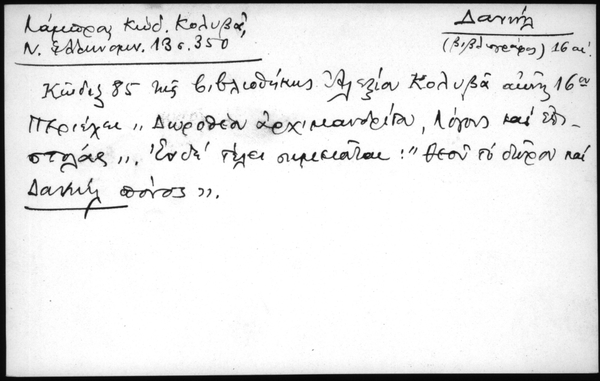 Λάμπρος Κώδ. Κολυβᾶ,
Ν. Ἑλληνομν. 13 σ. 350
Δανιήλ
(βιβλιογράφος) 16 αἰ.
Κῶδιξ 85 τῆς βιβλιοθήκης Ἀλεξίου Κολυβᾶ 16ου
Περιέχει „ Δωροθέου ἀρχιμανδρίτου, Λόγους καὶ ἐπι-
στολάς ”. Ἐν δὲ τέλει σημειοῦται : “ Θεοῦ τὸ δῶρον καὶ
Δανιὴλ πόνος ”.